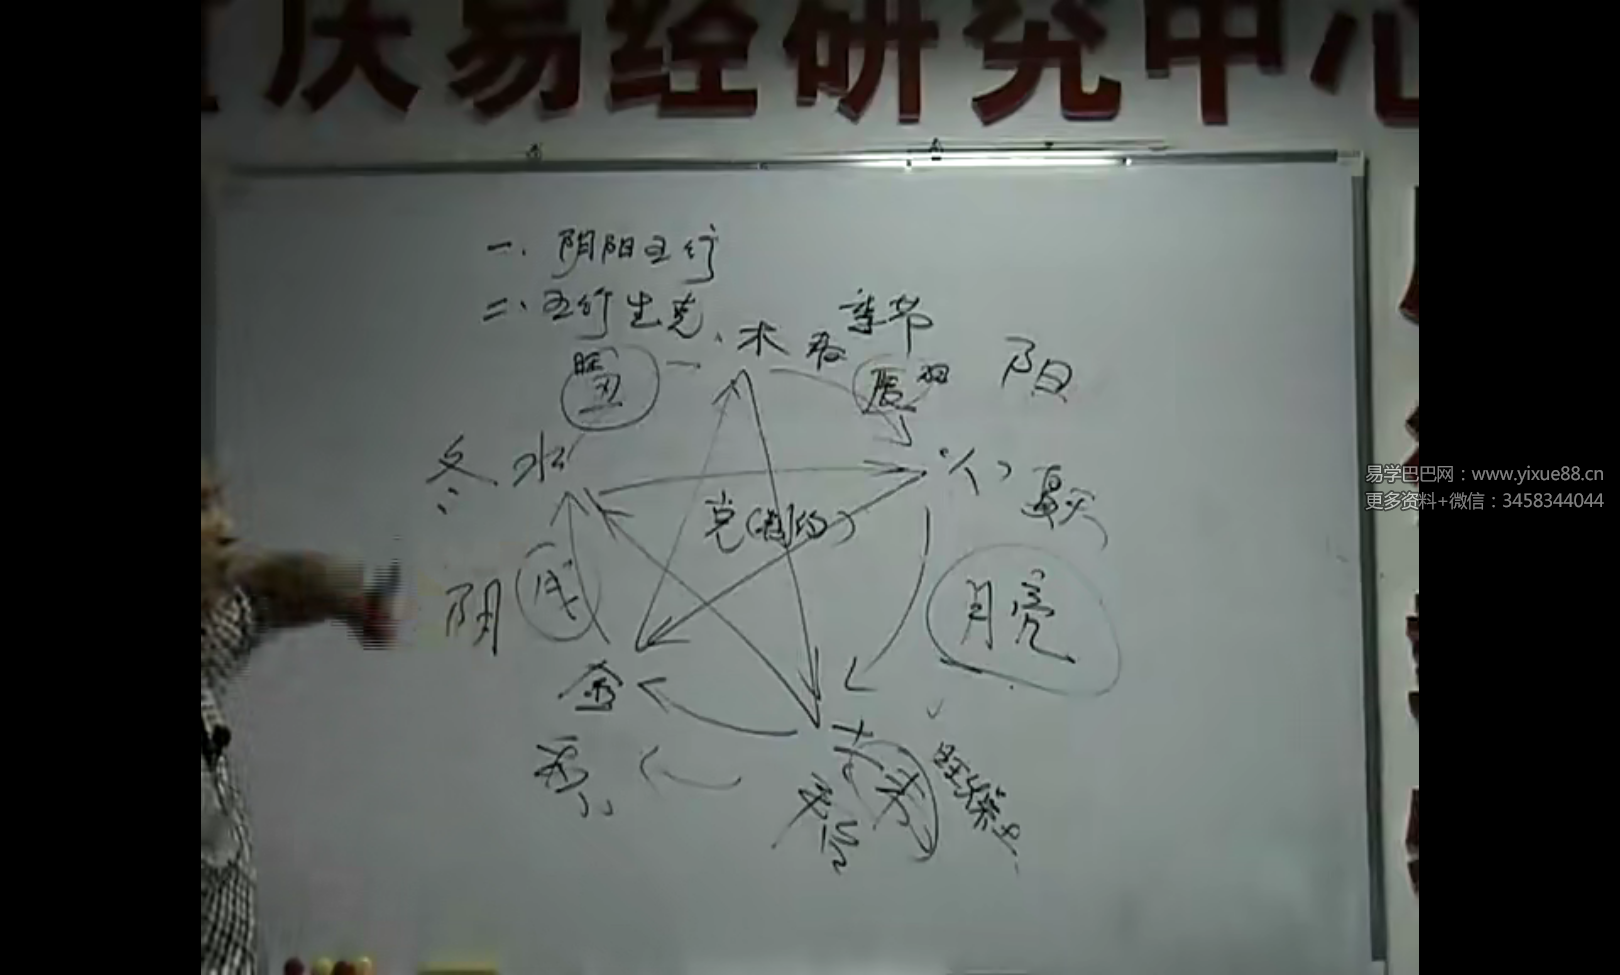 庆易经研究中心
一、阴阳五行
二、五行生克
季节
木 春
旺
丑
辰
阳
冬 水
火 夏天
克(制约)
易学巴巴网：www.yixue88.cn
更多资料+微信：3458344044
阴
戌
月亮
金
土
秋
未